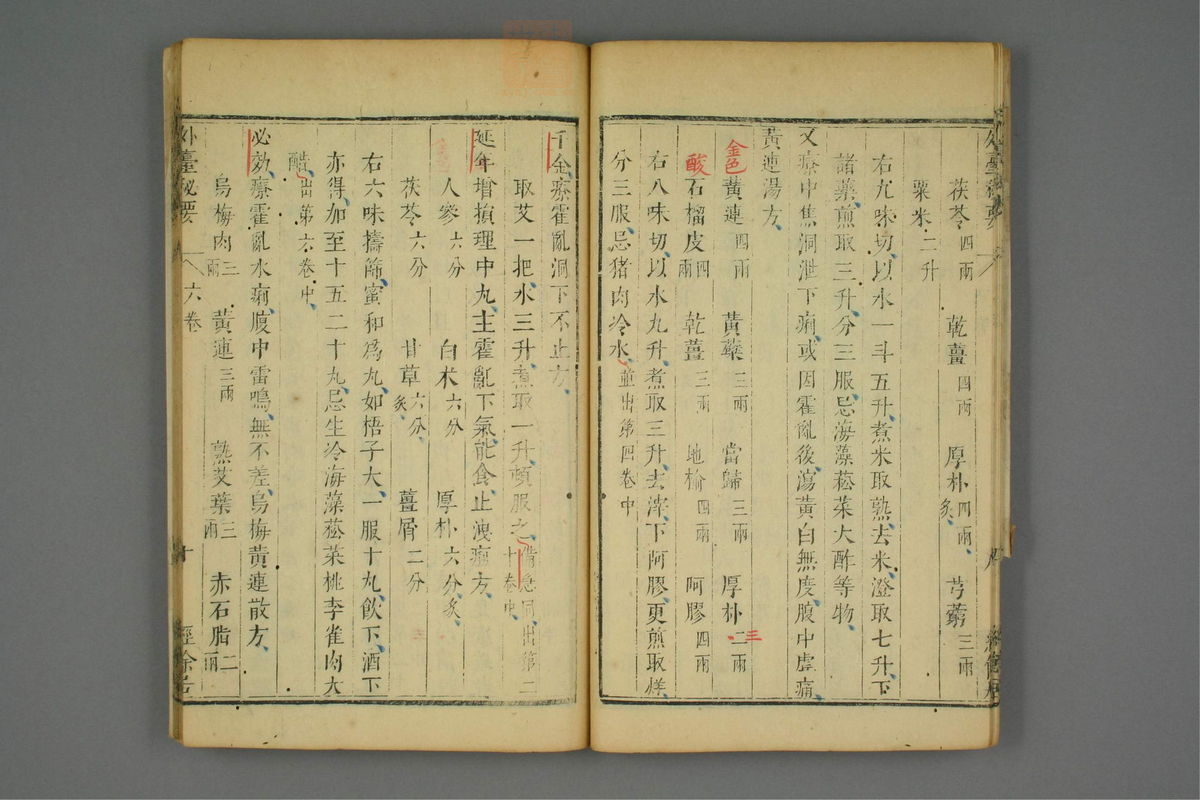 茯苓四兩 乾薑四兩 厚朴四兩炙 芎藭三兩
粟米二升
右九味切以水一斗五升煮米取熟去米澄取七升下
諸藥煎取三升分三服忌海藻菘菜大酢等物
又療中焦洞泄下痢或因霍亂後瀉黃白無度腹中虛痛
黃連湯方
金色黃連四兩 黃蘗三兩 當歸三兩 厚朴二兩
三
酸石榴皮四兩 乾薑三兩 地榆四兩 阿膠四兩
右八味切以水九升煮取三升去滓下阿膠更煎取烊
分三服忌猪肉冷水並出第四卷中
千金療霍亂洞下不止方
取艾一把水三升煮取一升頓服之備急同出第二十卷中
延年增損理中丸主霍亂下氣能食止洩痢方
人參六分 白朮六分 厚朴六分炙
茯苓六分 甘草六分炙 薑屑二分
右六味擣篩蜜和爲丸如梧子大一服十丸飲下酒下
亦得加至十五二十丸忌生冷海藻菘菜桃李雀肉大
醋出第六卷中
必効療霍亂水痢腹中雷鳴無不差烏梅黃連散方
烏梅肉三兩 黃連三兩 熟艾葉三兩 赤石脂二兩
外臺秘要 六卷 十 經餘居